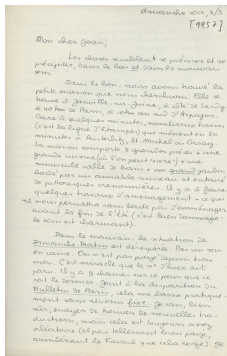 dimanche soir, 3/3
[1957]
Mon cher Jean,
Les choses semblent se préciser et se
précipiter, dans le bon et dans le mauvais
sens.
Dans le bon : nous avons trouvé la
petite maison que nous cherchions. Elle se
trouve à Janville-sur-Juine, à côté de Lardy
à 40 km de Paris, à 10 km au sud d'Arpajon.
Gare à quelques minutes, nombreux trains
(c'est la ligne d'Etampes) qui mènent en 50
minutes à Austerlitz, St-Michel ou Orsay.
La maison comporte 3 grandes pièces + une
grande cuisine (où l'on peut vivre) + une
minuscule salle de bains + un grand jardin
boisé par un admirable ruisseau et entouré
de pittoresques
quelques travaux d'aménagement - ce qui
ne nous permettra sans doute pas d'emménager
avant la fin de l'été (c'est bien dommage :
le coin est charmant).
Dans le mauvais : la situation de
Dimanche Matin est désespérée. Plus un sou
en caisse. On n'est pas payé depuis trois
mois. C'est miracle que le n° d'hier ait
paru. Il y a 9 chances sur 10 pour que ce
soit le dernier. Joint à la disparition du
Bulletin de Paris, cela me laisse pratique-
ment sans revenu fixe. Je peux, bien
sûr, essayer de trouver de nouvelles tra-
ductions, mais cela est toujours assez
aléatoire (et pas tellement bien payé,
considérant le travail que cela exige). Je